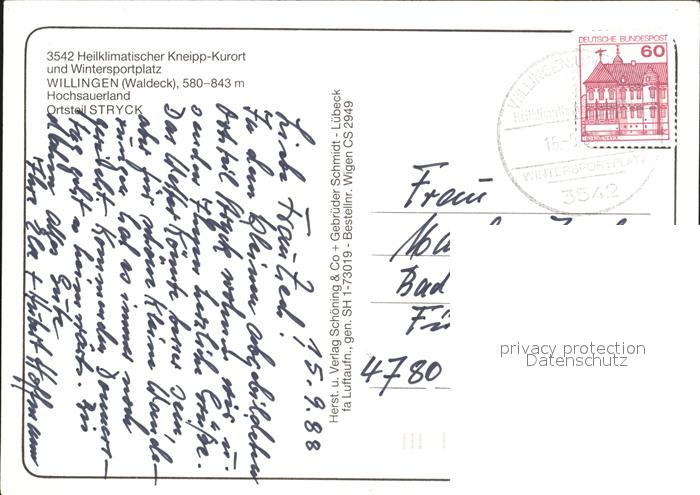 3542 Heilklimatischer Kneipp-Kurort
und Wintersportplatz
WILLINGEN (Waldeck), 580–843 m
Hochsauerland
Ortsteil STRYCK
15. 9. 88
Liebe Frau
In dem kleinen abgebildeten
Ortsteil Stryck wohnen wir u.
senden Ihnen herzliche Grüße.
Das Wetter könnte besser sein,
aber für schöne kleine Wande-
rungen hat es immer noch
gereicht. Kommenden Donners-
tag geht's heimwärts. Bis
dahin alles Gute
Ihre Hoffmann
Herst. u. Verlag Schöning & Co + Gebrüder Schmidt - Lübeck
fa Luftaufn., gen. SH 1-73019 - Bestellnr. Wigen CS 2949
DEUTSCHE BUNDESPOST
60
WILLINGEN
Heilklimatischer
15.-9.
WINTERSPORTPLATZ
3542
Frau
Bad
4780
privacy protection
Datenschutz